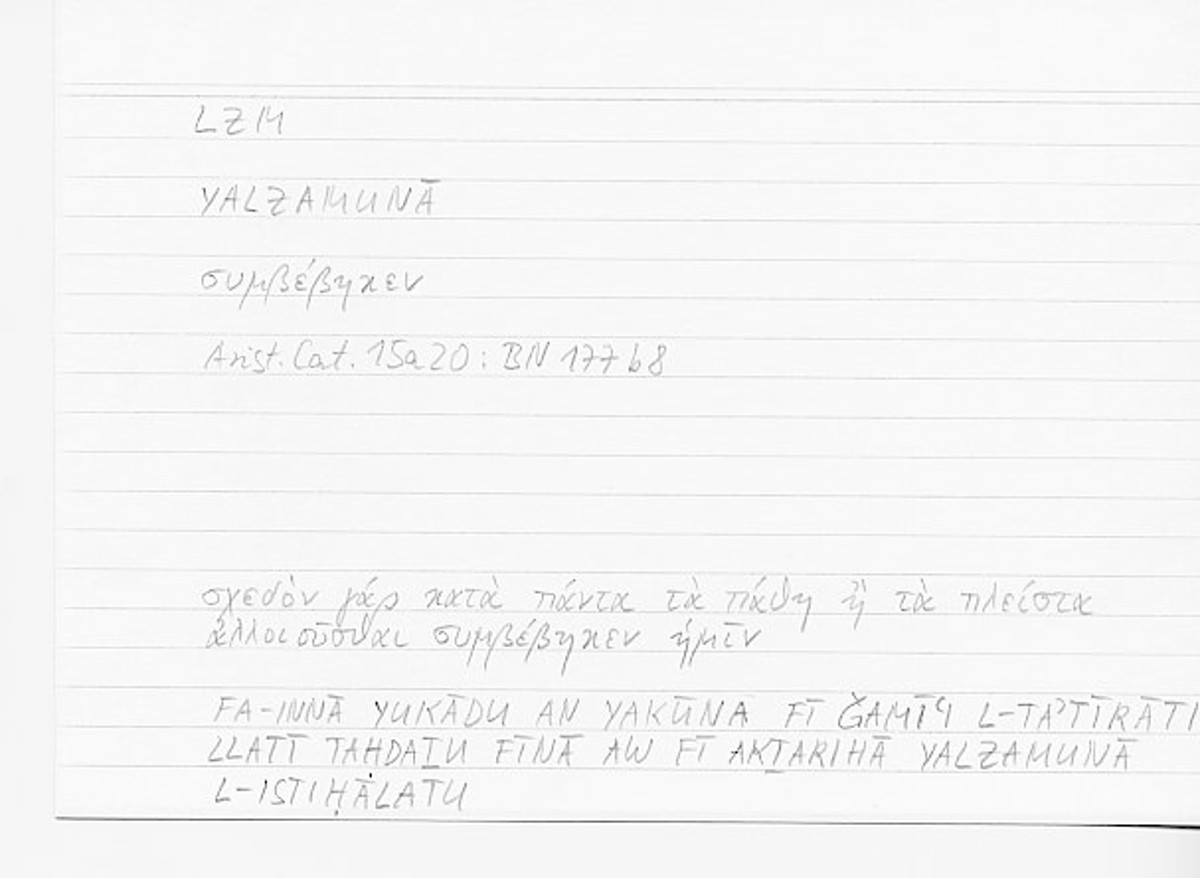 LZM
YALZAMUNĀ
συμβέβηκεν
Arist. Cat. 15a20 : BN 177 b8
σχεδὸν γάρ κατὰ πάντα τὰ πάθη ἢ τὰ πλείστα
ἀλλοιοῦσθαι συμβέβηκεν ἡμῖν
FA-INNĀ YUKĀDU AN YAKŪNA FĪ ǦAMĪʿI L-TAʾTĪRĀTI
LLATĪ TAḤDAṮU FĪNĀ AW FĪ AKṮARIHĀ YALZAMUNĀ
L-ISTIḤĀLATU